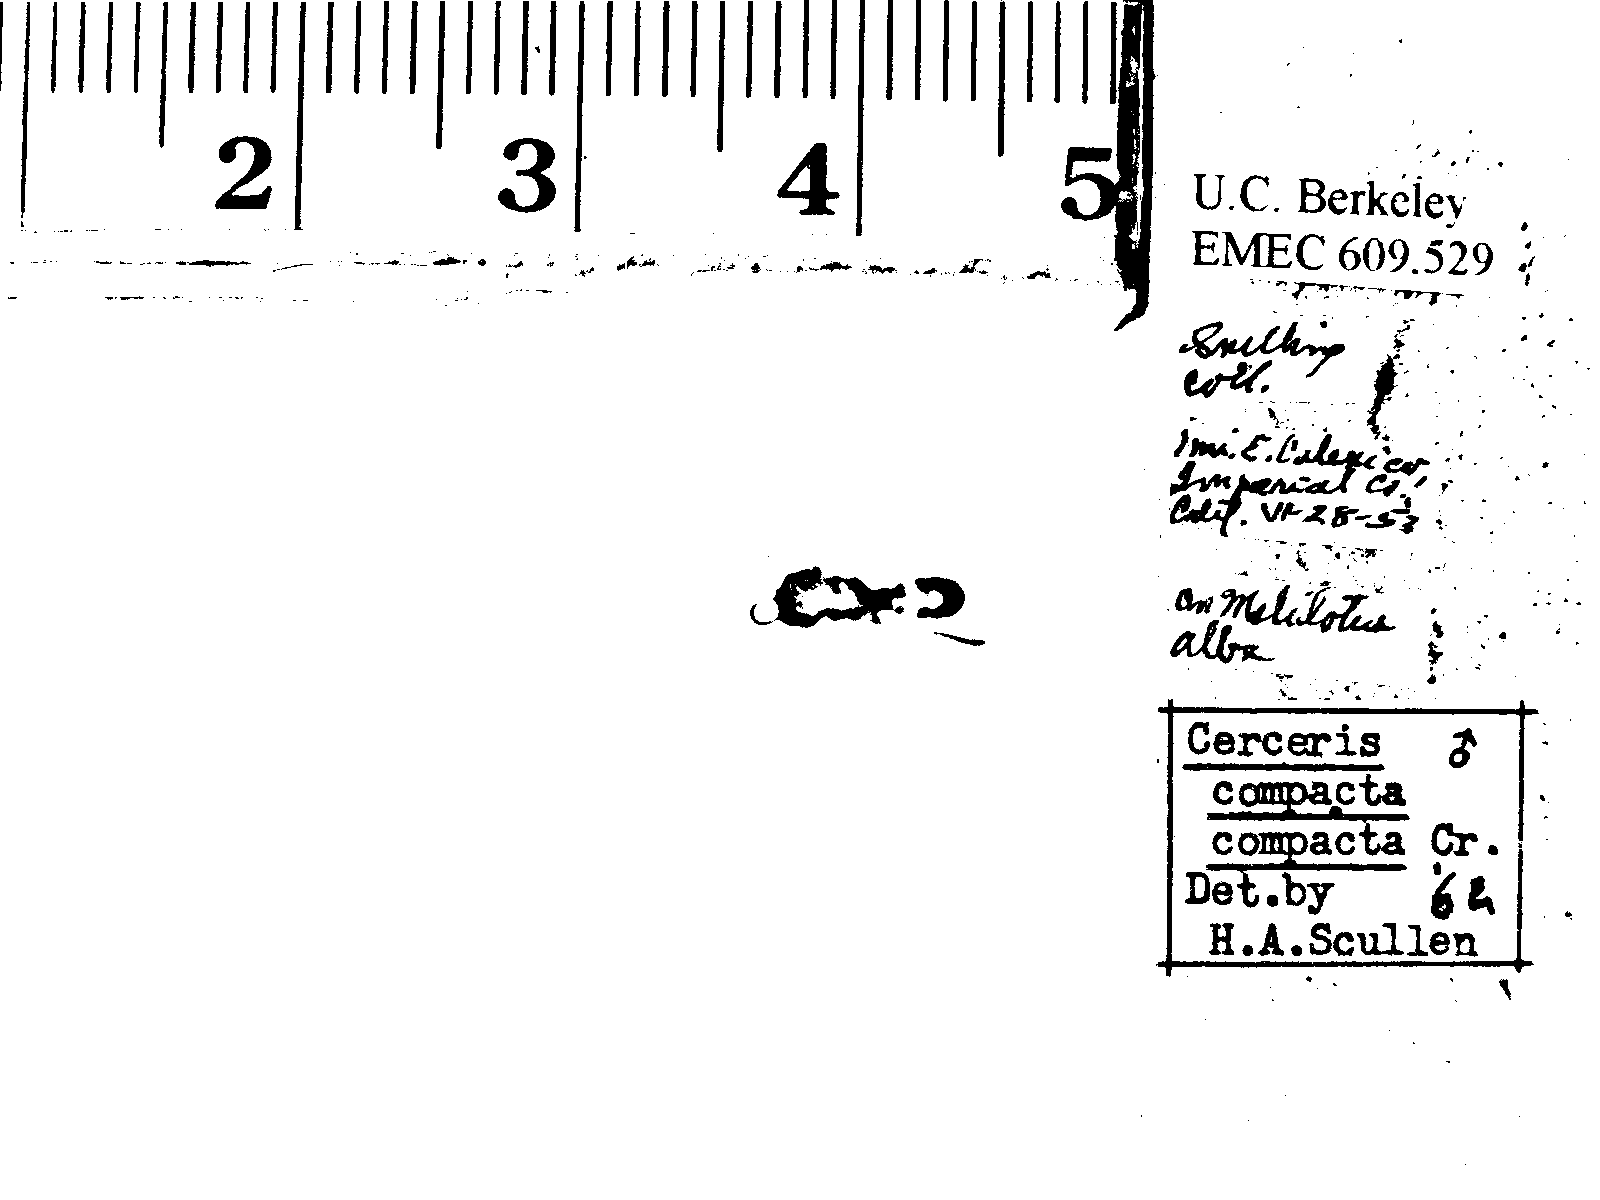 2 3 4 5
U.C. Berkeley
EMEC 609.529
Snelling
coll.
1 mi. E. Calexico,
Imperial Co.,
Calif. VI-28-53
on Melilotus
alba
Cerceris ♂
compacta
compacta Cr.
Det.by 62
H.A.Scullen